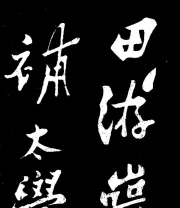 田游巖
補太學